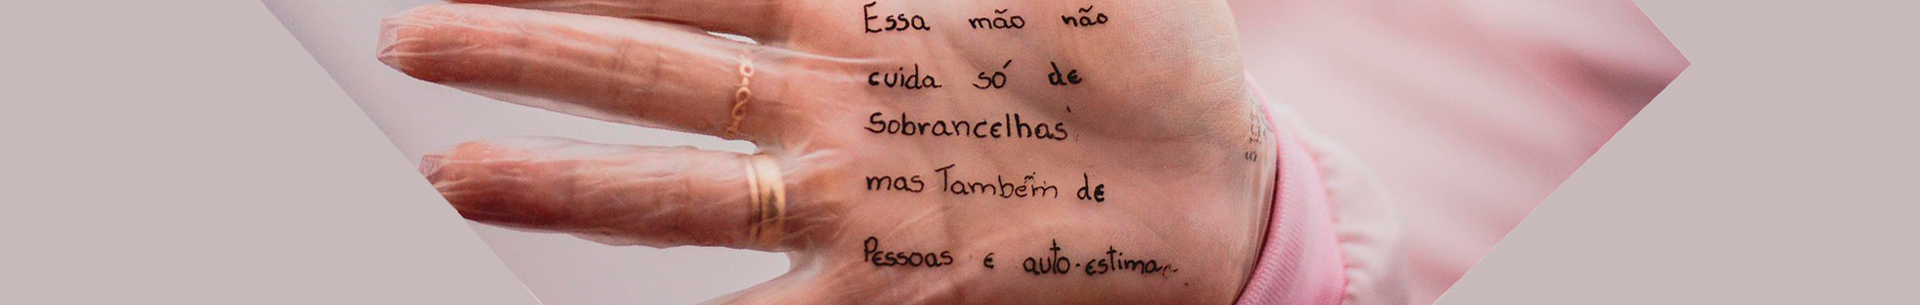 Essa mão não
cuida só de
Sobrancelhas
mas Também de
Pessoas e auto-estima